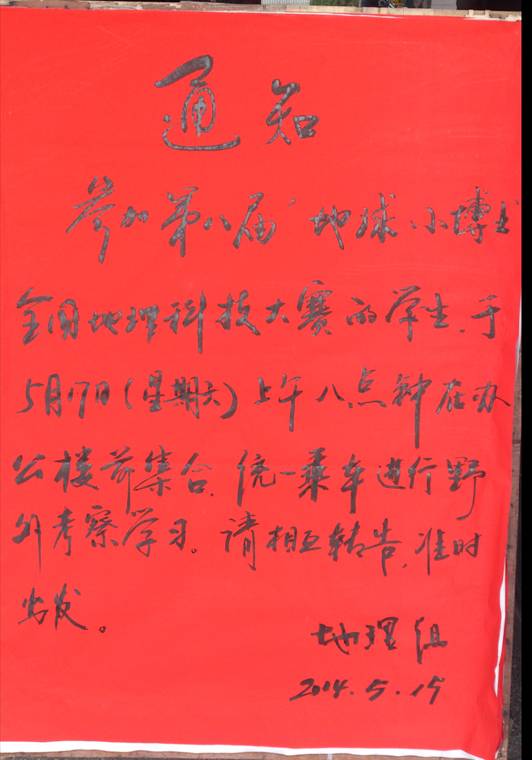 通知
参加第八届“地球小博士”
全国地理科技大赛的学生，于
5月17日（星期六）上午八点钟在办
公楼前集合，统一乘车进行野
外考察学习。请相互转告，准时
出发。
地理组
2014.5.15